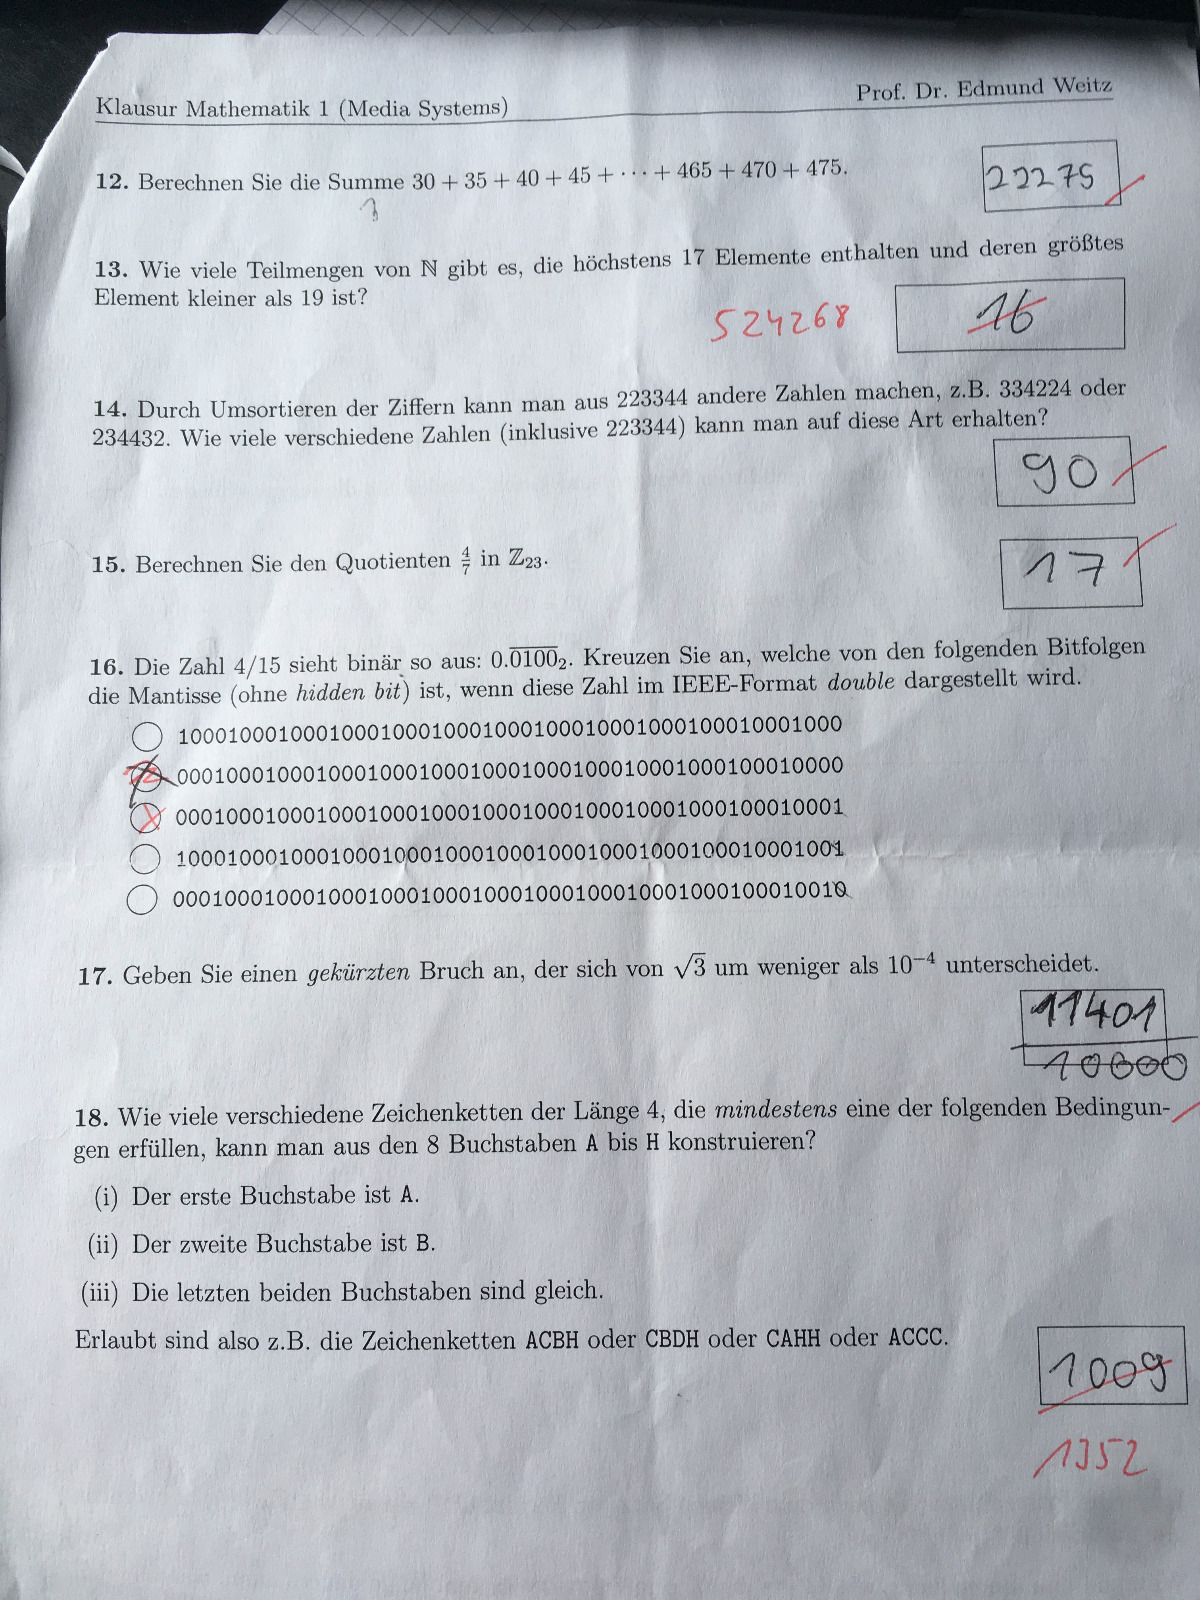 Klausur Mathematik 1 (Media Systems) Prof. Dr. Edmund Weitz
12. Berechnen Sie die Summe 30 + 35 + 40 + 45 + ··· + 465 + 470 + 475.
22275
13. Wie viele Teilmengen von ℕ gibt es, die höchstens 17 Elemente enthalten und deren größtes
Element kleiner als 19 ist?
524268
16
14. Durch Umsortieren der Ziffern kann man aus 223344 andere Zahlen machen, z.B. 334224 oder
234432. Wie viele verschiedene Zahlen (inklusive 223344) kann man auf diese Art erhalten?
90
15. Berechnen Sie den Quotienten 4/7 in ℤ₂₃.
17
16. Die Zahl 4/15 sieht binär so aus: 0.0̅1̅0̅0̅₂. Kreuzen Sie an, welche von den folgenden Bitfolgen
die Mantisse (ohne hidden bit) ist, wenn diese Zahl im IEEE-Format double dargestellt wird.
1000100010001000100010001000100010001000100010001000
0001000100010001000100010001000100010001000100010000
0001000100010001000100010001000100010001000100010001
1000100010001000100010001000100010001000100010001001
0001000100010001000100010001000100010001000100010010
17. Geben Sie einen gekürzten Bruch an, der sich von √3 um weniger als 10⁻⁴ unterscheidet.
11401
10000
18. Wie viele verschiedene Zeichenketten der Länge 4, die mindestens eine der folgenden Bedingun-
gen erfüllen, kann man aus den 8 Buchstaben A bis H konstruieren?
(i) Der erste Buchstabe ist A.
(ii) Der zweite Buchstabe ist B.
(iii) Die letzten beiden Buchstaben sind gleich.
Erlaubt sind also z.B. die Zeichenketten ACBH oder CBDH oder CAHH oder ACCC.
1009
1352